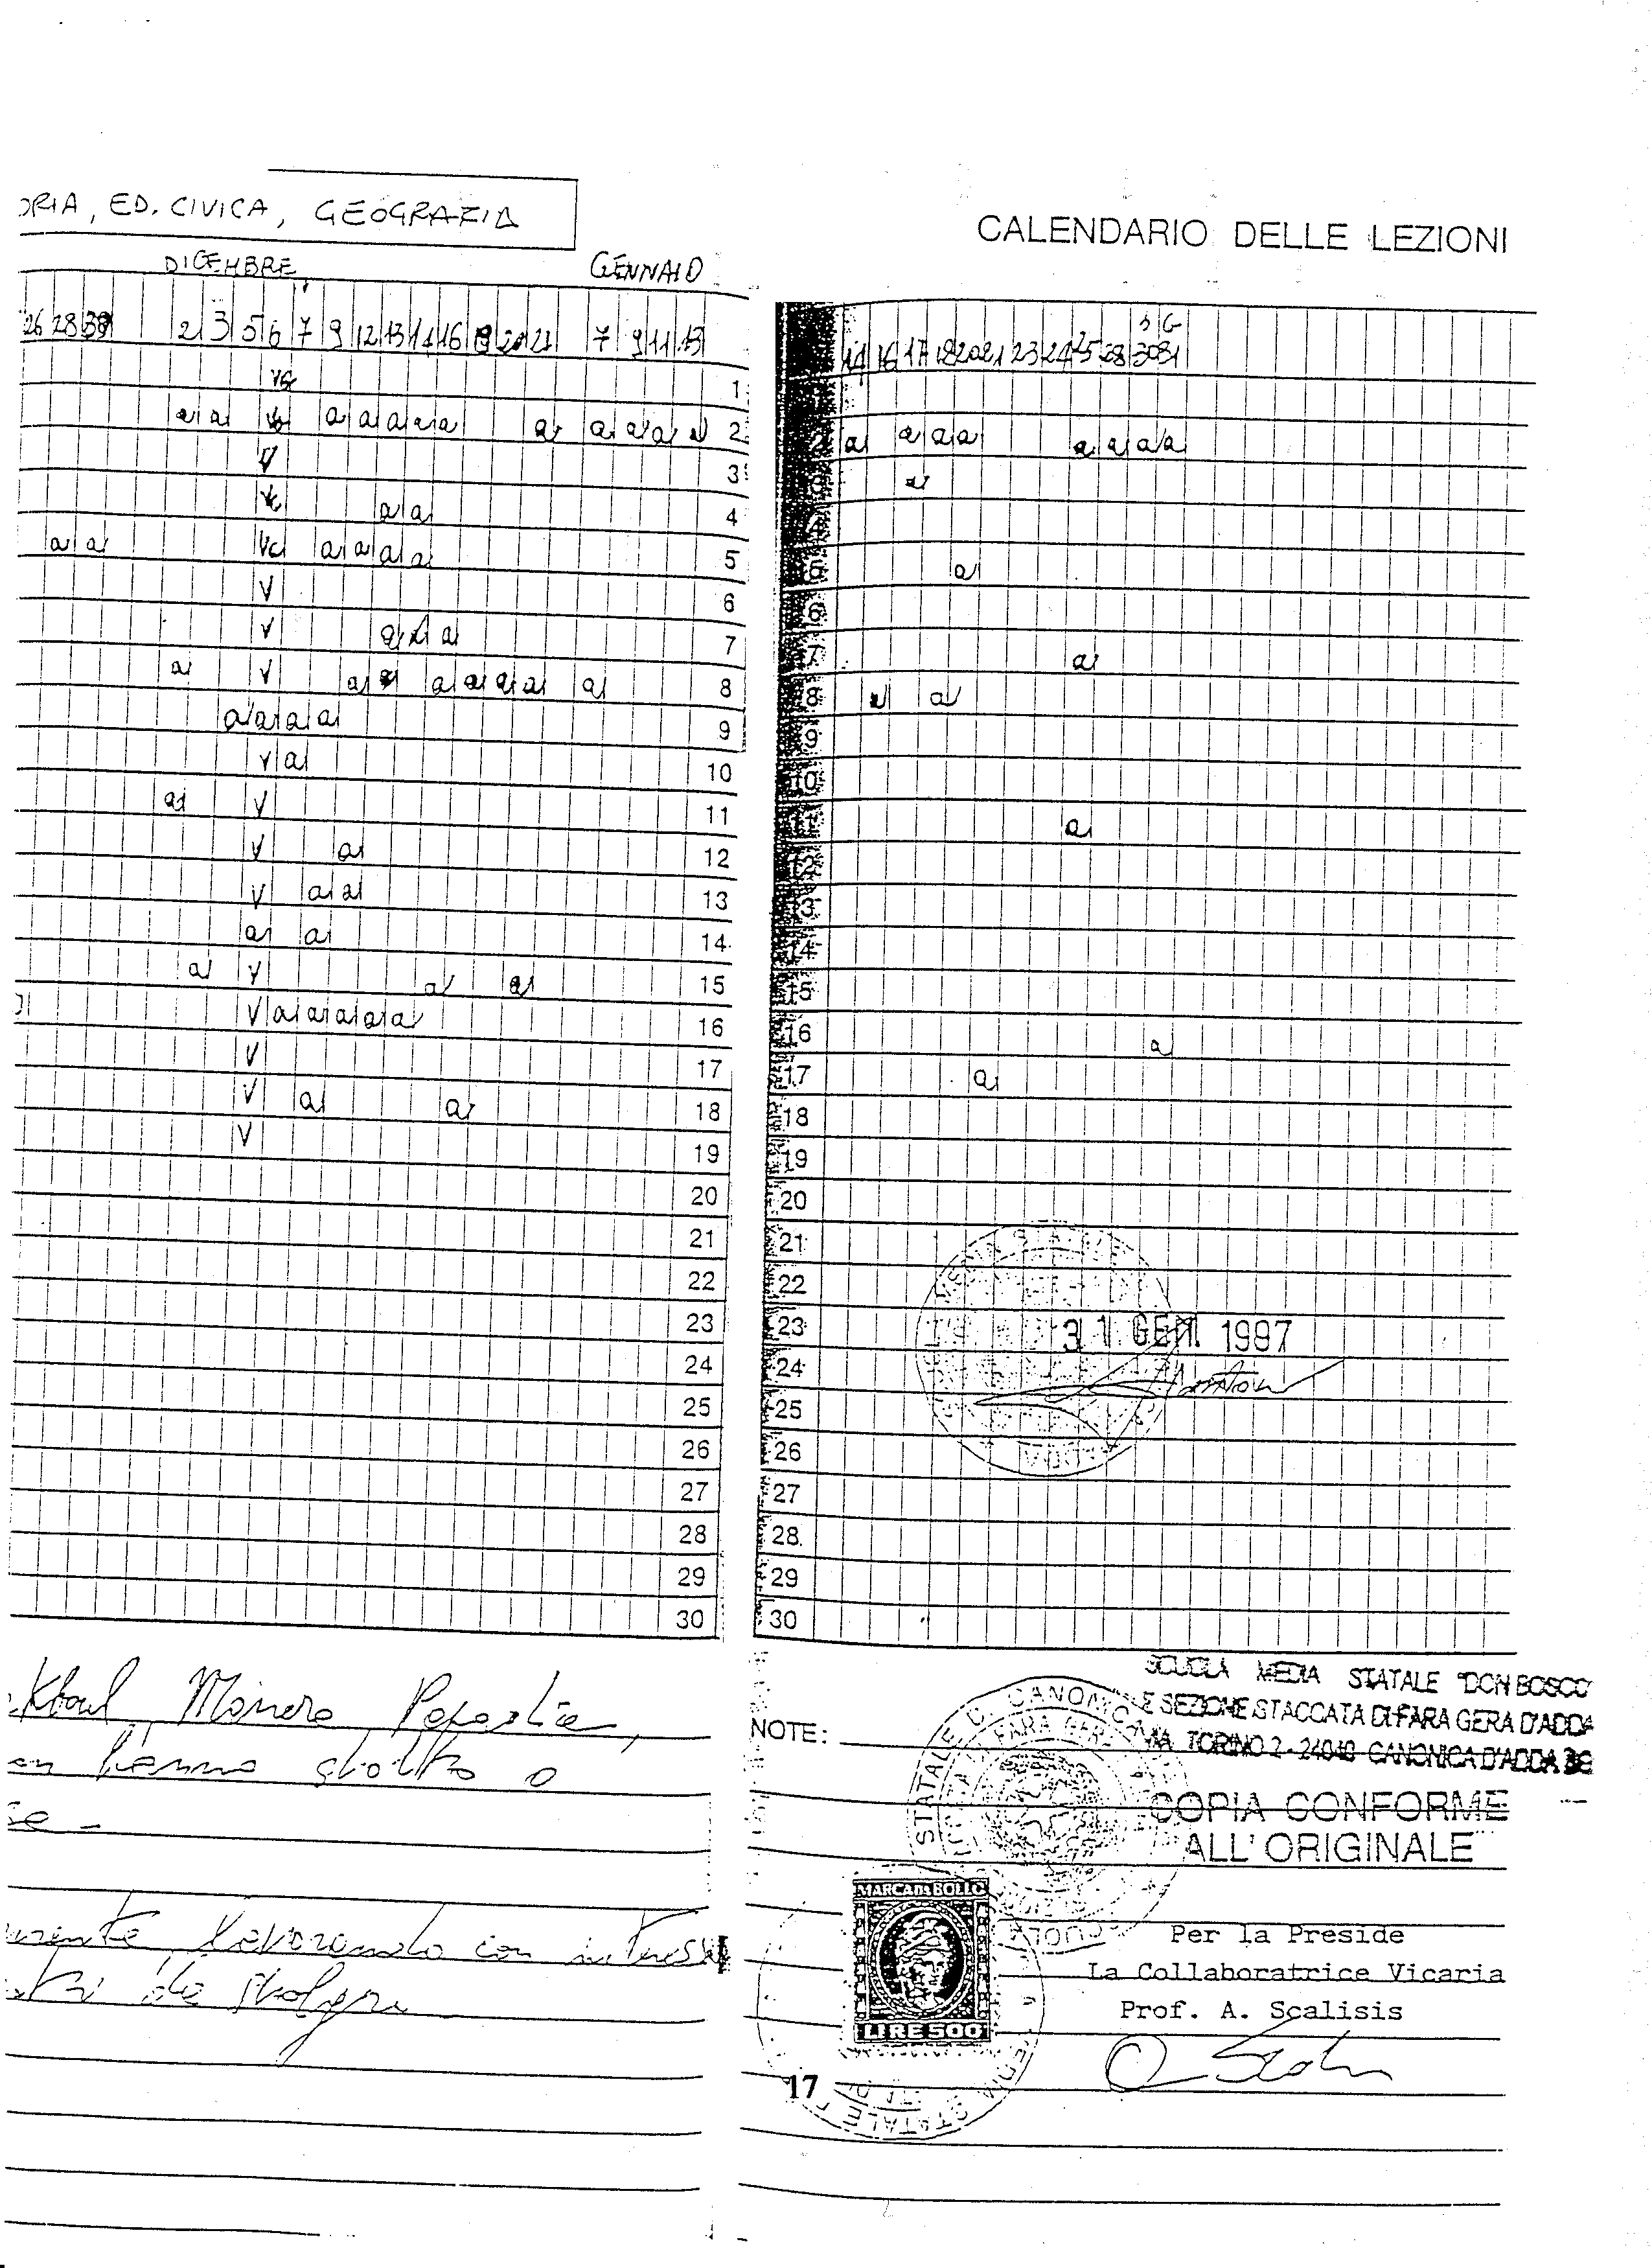 ORIA, ED. CIVICA, GEOGRAFIA
DICEMBRE GENNAIO
26 28 30 2 3 5 6 7 9 12 13 14 16 18 20 21 7 9 11 13
VG 1
a a a a a a a a a a a 2
V 3
a a 4
a a a a a a 5
V 6
V a a 7
a V a a a a a a 8
a a a a 9
V a 10
a V 11
V a 12
V a a 13
a a 14
a V a a 15
V a a a a a 16
V 17
V a a 18
V 19
20
21
22
23
24
25
26
27
28
29
30
Monera
hanno svolto o
lavorando con
da svolgere
CALENDARIO DELLE LEZIONI
S G
14 16 17 18 20 21 23 24 25 28 30 31
a a a a a a a a
5 a
6
7 a
8 a
9
10
11 a
12
13
14
15
16 a
17 a
18
19
20
21
22
23 31 GEN. 1997
24
25
26
27
28
29
30
SCUOLA MEDIA STATALE "DON BOSCO"
E SEZIONE STACCATA DI FARA GERA D'ADDA
NOTE:
VIA TORINO 2 - 24040 CANONICA D'ADDA BG
COPIA CONFORME
ALL'ORIGINALE
MARCA DA BOLLO
Per la Preside
La Collaboratrice Vicaria
Prof. A. Scalisis
LIRE 500
17